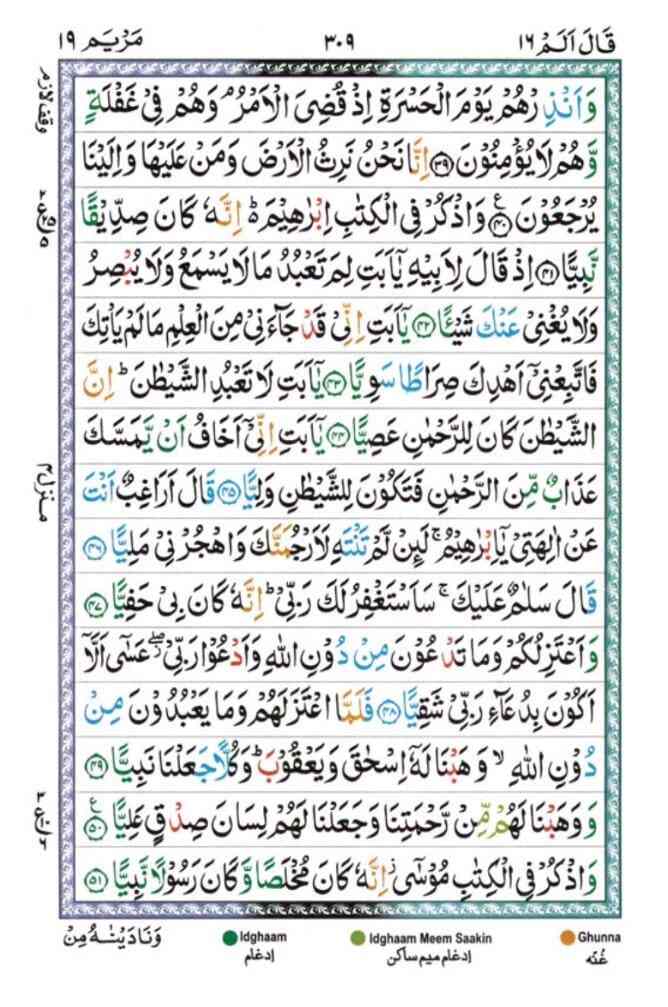 قَالَ اَلَمْ ١٦ ٣٠٩ مَرْيَم ١٩
وَاَنْذِرْهُمْ يَوْمَ الْحَسْرَةِ اِذْ قُضِىَ الْاَمْرُ ۘ وَهُمْ فِىْ غَفْلَةٍ
وَّهُمْ لَا يُؤْمِنُوْنَ ﴿٣٩﴾ اِنَّا نَحْنُ نَرِثُ الْاَرْضَ وَمَنْ عَلَيْهَا وَاِلَيْنَا
يُرْجَعُوْنَ ﴿٤٠﴾ وَاذْكُرْ فِى الْكِتٰبِ اِبْرٰهِيْمَ ؕ اِنَّهٗ كَانَ صِدِّيْقًا
نَّبِيًّا ﴿٤١﴾ اِذْ قَالَ لِاَبِيْهِ يٰۤاَبَتِ لِمَ تَعْبُدُ مَا لَا يَسْمَعُ وَلَا يُبْصِرُ
وَلَا يُغْنِىْ عَنْكَ شَيْئًا ﴿٤٢﴾ يٰۤاَبَتِ اِنِّىْ قَدْ جَآءَنِىْ مِنَ الْعِلْمِ مَا لَمْ يَاْتِكَ
فَاتَّبِعْنِىْۤ اَهْدِكَ صِرَاطًا سَوِيًّا ﴿٤٣﴾ يٰۤاَبَتِ لَا تَعْبُدِ الشَّيْطٰنَ ؕ اِنَّ
الشَّيْطٰنَ كَانَ لِلرَّحْمٰنِ عَصِيًّا ﴿٤٤﴾ يٰۤاَبَتِ اِنِّىْۤ اَخَافُ اَنْ يَّمَسَّكَ
عَذَابٌ مِّنَ الرَّحْمٰنِ فَتَكُوْنَ لِلشَّيْطٰنِ وَلِيًّا ﴿٤٥﴾ قَالَ اَرَاغِبٌ اَنْتَ
عَنْ اٰلِهَتِىْ يٰۤاِبْرٰهِيْمُ ۚ لَئِنْ لَّمْ تَنْتَهِ لَاَرْجُمَنَّكَ وَاهْجُرْنِىْ مَلِيًّا ﴿٤٦﴾
قَالَ سَلٰمٌ عَلَيْكَ ۚ سَاَسْتَغْفِرُ لَكَ رَبِّىْ ؕ اِنَّهٗ كَانَ بِىْ حَفِيًّا ﴿٤٧﴾
وَاَعْتَزِلُكُمْ وَمَا تَدْعُوْنَ مِنْ دُوْنِ اللّٰهِ وَاَدْعُوْا رَبِّىْ ۖ عَسٰٓى اَلَّاۤ
اَكُوْنَ بِدُعَآءِ رَبِّىْ شَقِيًّا ﴿٤٨﴾ فَلَمَّا اعْتَزَلَهُمْ وَمَا يَعْبُدُوْنَ مِنْ
دُوْنِ اللّٰهِ ۙ وَهَبْنَا لَهٗۤ اِسْحٰقَ وَيَعْقُوْبَ ؕ وَكُلًّا جَعَلْنَا نَبِيًّا ﴿٤٩﴾
وَوَهَبْنَا لَهُمْ مِّنْ رَّحْمَتِنَا وَجَعَلْنَا لَهُمْ لِسَانَ صِدْقٍ عَلِيًّا ﴿٥٠﴾
وَاذْكُرْ فِى الْكِتٰبِ مُوْسٰٓى ؗ اِنَّهٗ كَانَ مُخْلَصًا وَّكَانَ رَسُوْلًا نَّبِيًّا ﴿٥١﴾
وَنَادَيْنٰهُ مِنْ
Idghaam
ادغام
Idghaam Meem Saakin
ادغام میم ساکن
Ghunna
غُنّه
وقف لازم
منزل ٤